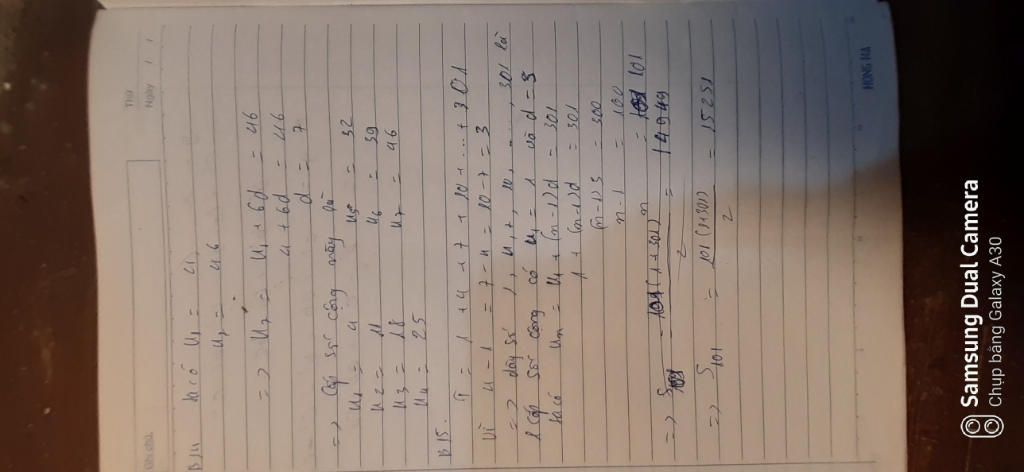 Thứ
Ngày / /
Ghi chú:
B14 ta có U₁ = 4,
U₇ = 46
=> U₇ = U₁ + 6d = 46
4 + 6d = 46
d = 7
=> Cấp số cộng này là
U₁ = 4 U₅ = 32
U₂ = 11 U₆ = 39
U₃ = 18 U₇ = 46
U₄ = 25
B15.
T = 1 + 4 + 7 + 10 + ... + 301
Vì 4 - 1 = 7 - 4 = 10 - 7 = 3
=> dãy số 1, 4, 7, 10, ..., 301 là
1 cấp số cộng có U₁ = 1 và d = 3
ta có Uₙ = U₁ + (n-1)d = 301
1 + (n-1)d = 301
(n-1)3 = 300
n-1 = 100
n = 101
=> S = (1+301) / 2 = 14949
=> S₁₀₁ = 101(1+301) / 2 = 15251
HONG HA
Samsung Dual Camera
Chụp bằng Galaxy A30